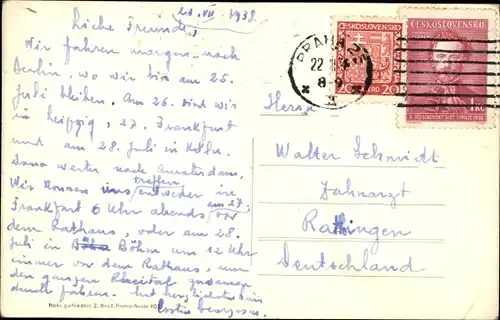 21. VII. 1938.
Liebe Freunde,
Wir fahren morgen nach
Berlin, wo wir bis am 25.
Juli bleiben. Am 26. sind wir
in Leipzig, 27. Frankfurt
und am 28. Juli in Köln.
Dann weiter nach Amsterdam.
Wir können uns treffen entweder in
Frankfurt 6 Uhr abends am 27. vor
dem Rathaus, oder am 28.
Juli in Böhm um 12 Uhr
immer vor dem Rathaus, um
den ganzen zusammen
durch fahren. Mit
Nakl. pohlednic Z. Brož, Praha-Nusle
ČESKOSLOVENSKO
20 20
ČESKOSLOVENSKO
1 Kč
X. VŠESOKOLSKÝ SLET V PRAZE 1938
PRAHA 25
22
8
Herrn
Walter Schmidt
Zahnarzt
Rattingen
Deutschland